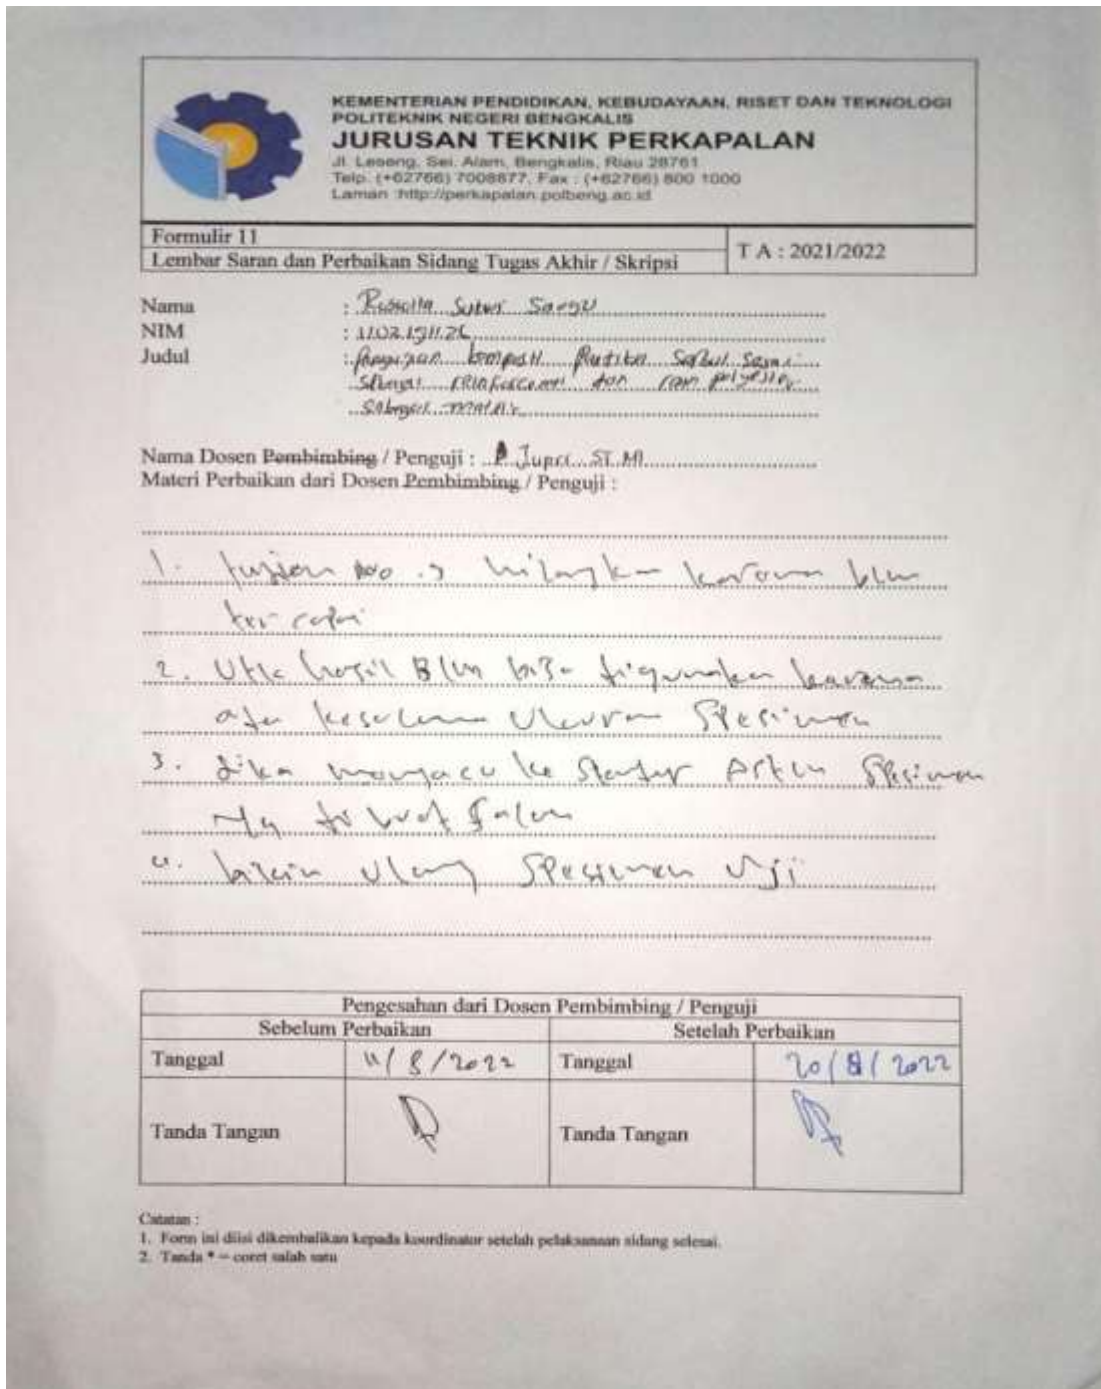 KEMENTERIAN PENDIDIKAN, KEBUDAYAAN, RISET DAN TEKNOLOGI
POLITEKNIK NEGERI BENGKALIS
JURUSAN TEKNIK PERKAPALAN
Jl. Leseng, Sei. Alam, Bengkalis, Riau 28761
Telp. (+62766) 7008877, Fax : (+62766) 800 1000
Laman :http://perkapalan.polbeng.ac.id
Formulir 11
Lembar Saran dan Perbaikan Sidang Tugas Akhir / Skripsi
T A : 2021/2022
Nama :
NIM :
Judul : komposit serbuk
reinforcement dan polyester
sebagai
Nama Dosen Pembimbing / Penguji : Jupri ST. MT
Materi Perbaikan dari Dosen Pembimbing / Penguji :
1. tujuan no .3 hilangkan karena blm
tercapai
2. Utk hasil Blm bisa digunakan karena
ukuran Spesimen
3. Jika mengacu ke Spesimen
4. bikin ulang Spesimen Uji
Pengesahan dari Dosen Pembimbing / Penguji
Sebelum Perbaikan Setelah Perbaikan
Tanggal 11/8/2022 Tanggal 20/8/2022
Tanda Tangan Tanda Tangan
Catatan :
1. Form ini diisi dikembalikan kepada koordinator setelah pelaksanaan sidang selesai.
2. Tanda * = coret salah satu